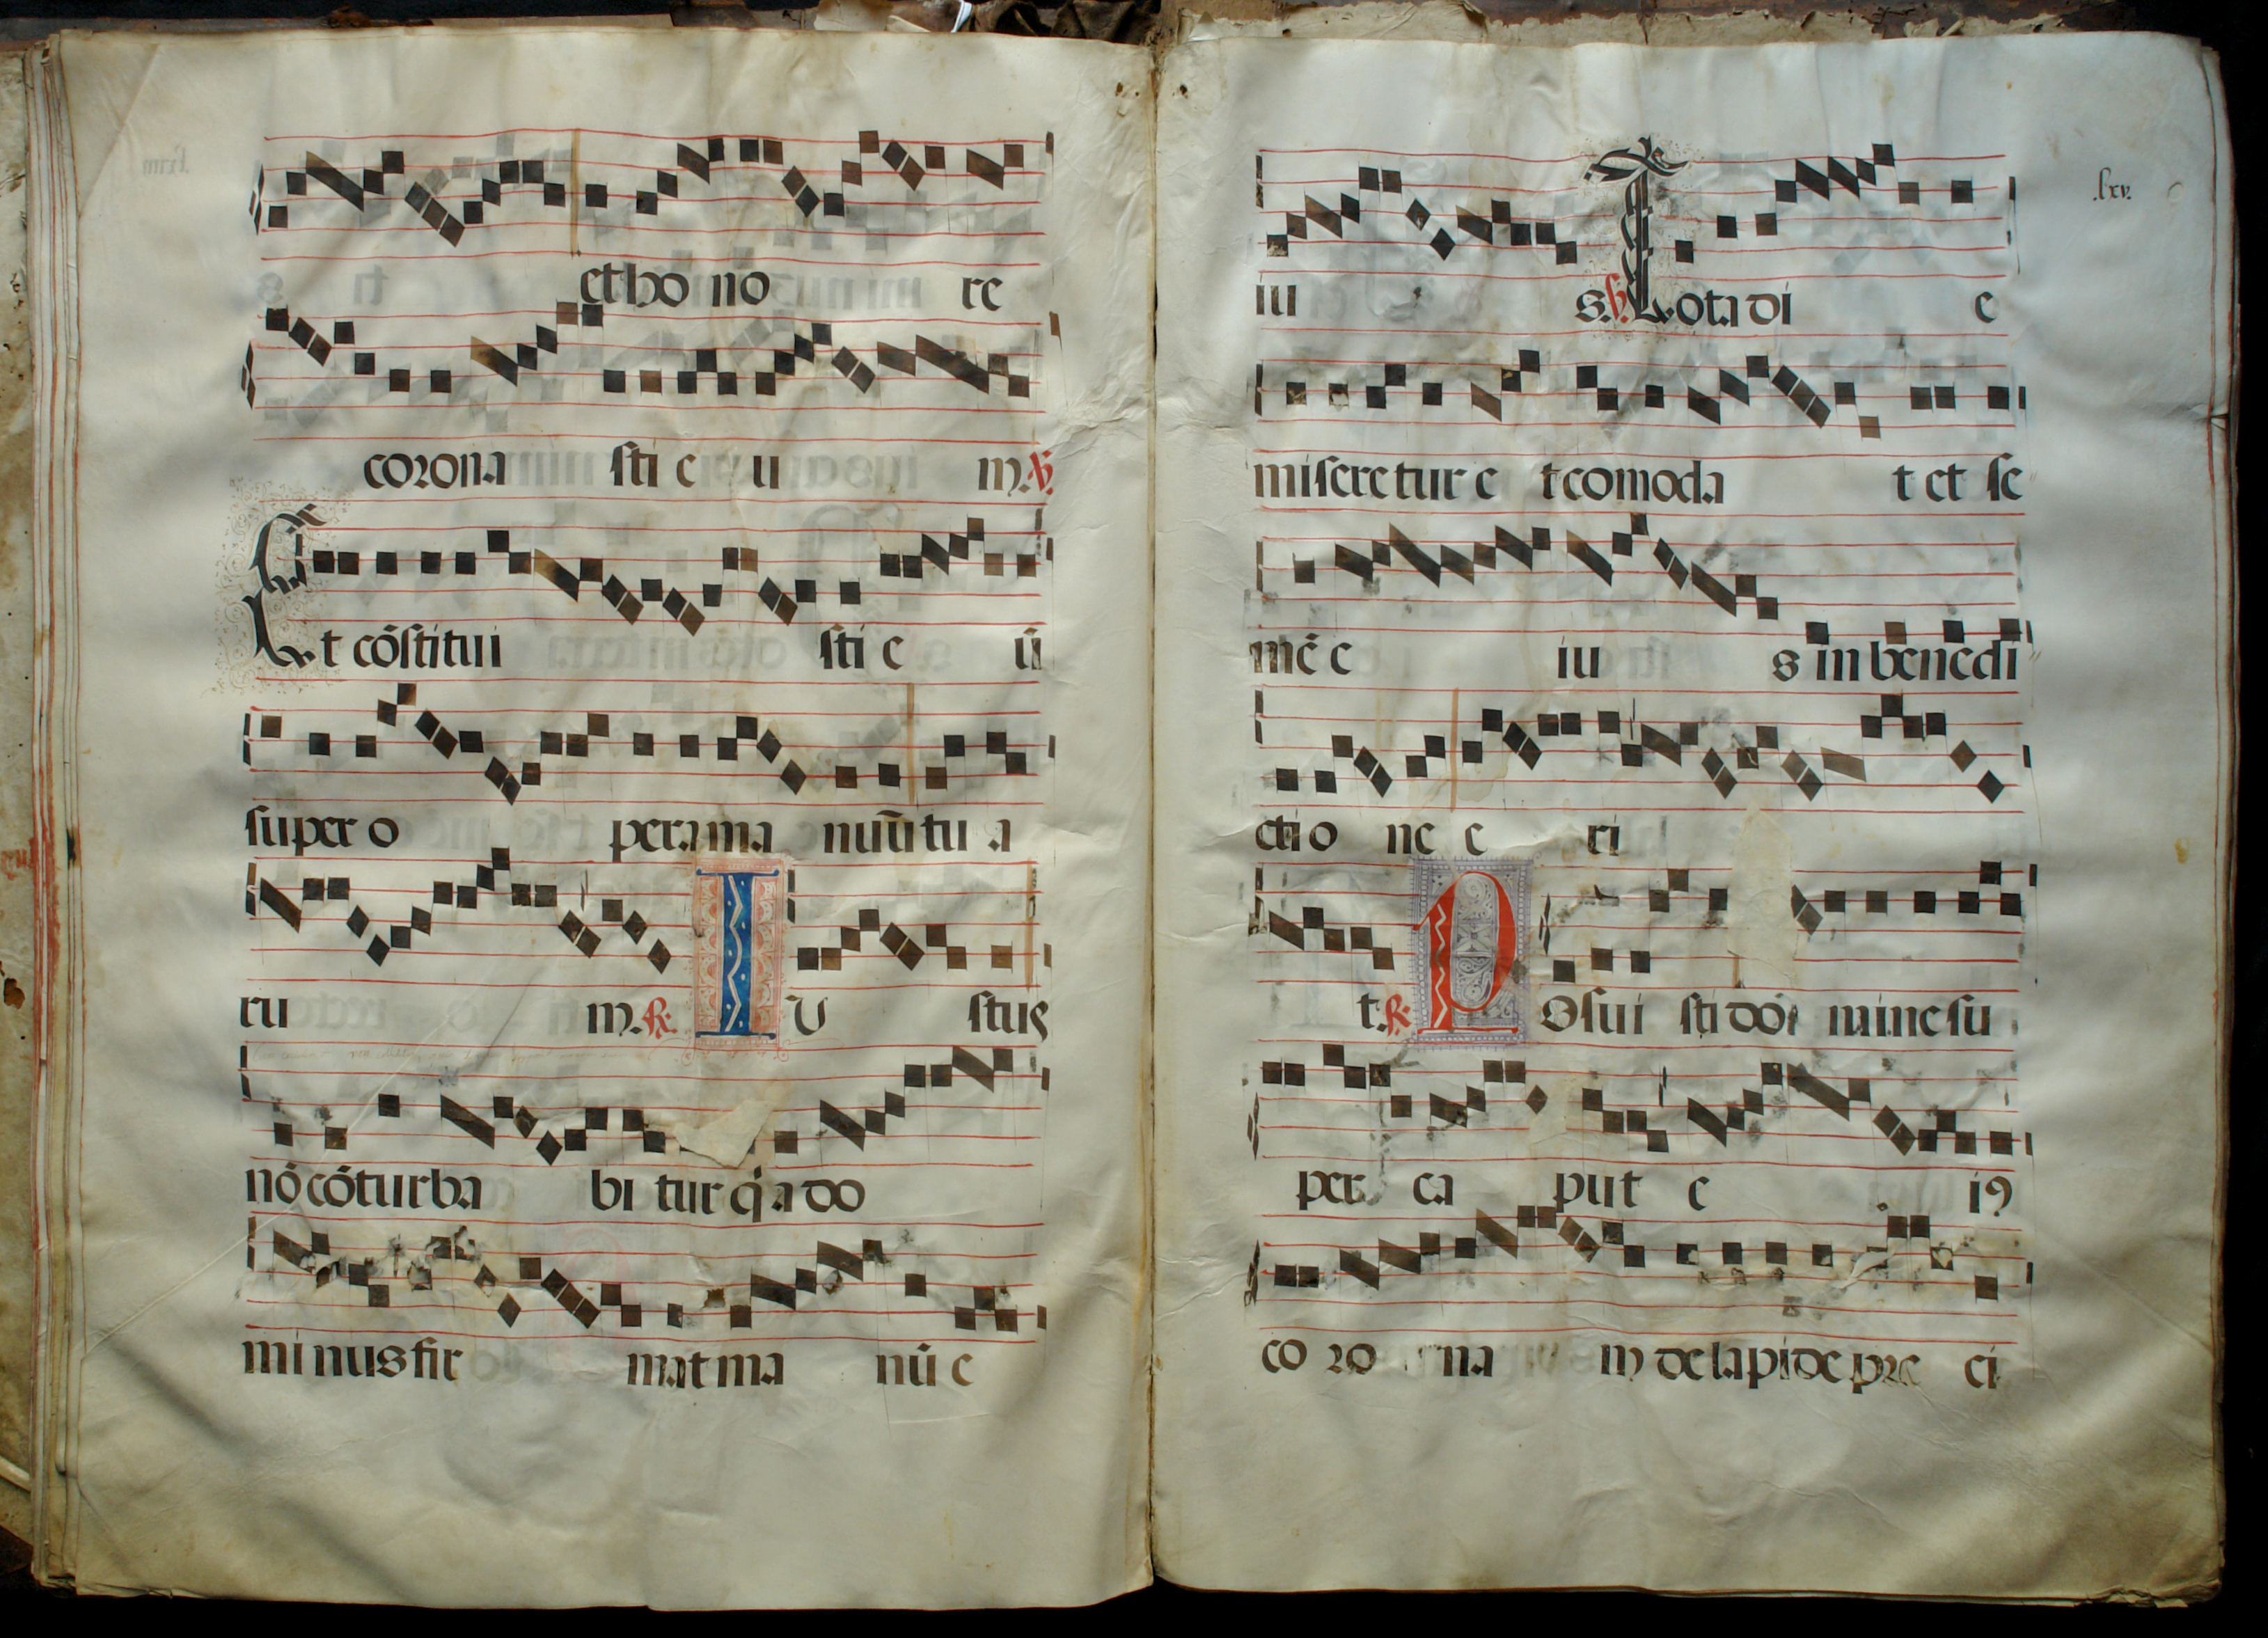 et ho no re
corona sti e u m. ℣.
Et cōstitui sti e ū
super o pera ma nuū tu a
ru m. ℟. I U stus
nō cōturba bi tur q̄a do
mi nus fir mat ma nū e
.lxv.
iu s. ℣. Tota di e
miseretur e t comoda t et se
mē e iu s in benedi
ctio ne e ri
t. ℟. P Osui sti dō mine su
per ca put e i9
co ro na m de lapide pre ci